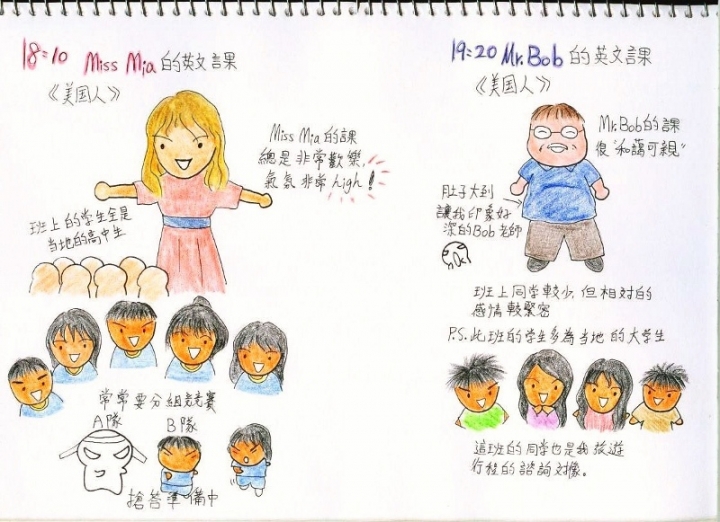 18:10 Miss Mia的英文課
《美国人》
Miss Mia的課
總是非常歡樂
氣氛非常high!
班上的学生全是
当地的高中生
常常要分組競賽
A隊 B隊
搶答準備中
19:20 Mr.Bob的英文課
《美国人》
Mr.Bob的課
很"和藹可親"
肚子大到
讓我印象好
深的Bob老師
班上同学較少,但相对的
感情較緊密
P.S.此班的学生多為当地的大学生
這班的同学也是我旅遊
行程的諮詢对像。